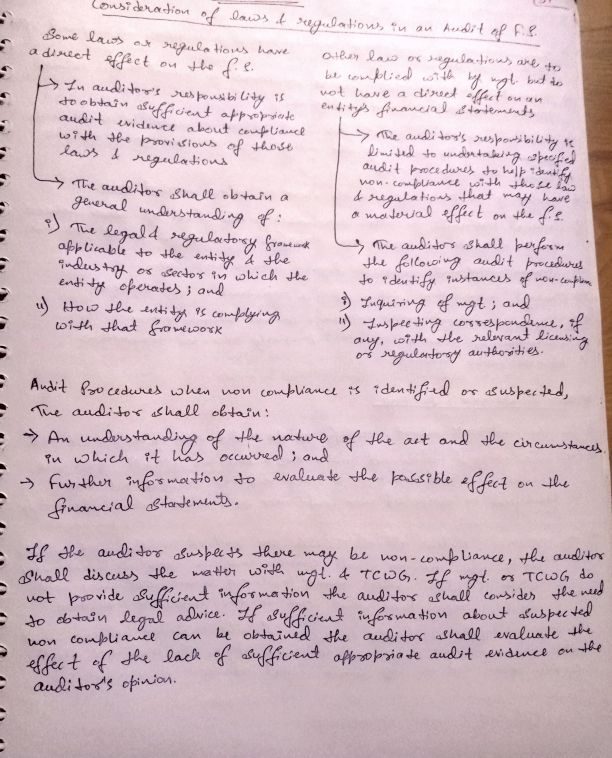 Consideration of laws & regulations in an Audit of F.S.
Some laws or regulations have
a direct effect on the f.s.
→ In auditor's responsibility is
to obtain sufficient appropriate
audit evidence about compliance
with the provisions of those
laws & regulations
→ The auditor shall obtain a
general understanding of:
i) The legal & regulatory framework
applicable to the entity & the
industry or sector in which the
entity operates; and
ii) How the entity is complying
with that framework
Other law or regulations are to
be complied with by mgt. but do
not have a direct effect on an
entity's financial statements
→ The auditor's responsibility is
limited to undertaking specified
audit procedures to help identify
non-compliance with those law
& regulations that may have
a material effect on the f.s.
→ The auditor shall perform
the following audit procedures
to identify instances of non-compliance
i) Inquiring of mgt; and
ii) Inspecting correspondence, if
any, with the relevant licensing
or regulatory authorities.
Audit Procedures when non compliance is identified or suspected,
The auditor shall obtain:
→ An understanding of the nature of the act and the circumstances
in which it has occurred; and
→ Further information to evaluate the possible effect on the
financial statements.
If the auditor suspects there may be non-compliance, the auditor
shall discuss the matter with mgt. & TCWG. If mgt. or TCWG do
not provide sufficient information the auditor shall consider the need
to obtain legal advice. If sufficient information about suspected
non compliance can be obtained the auditor shall evaluate the
effect of the lack of sufficient appropriate audit evidence on the
auditor's opinion.